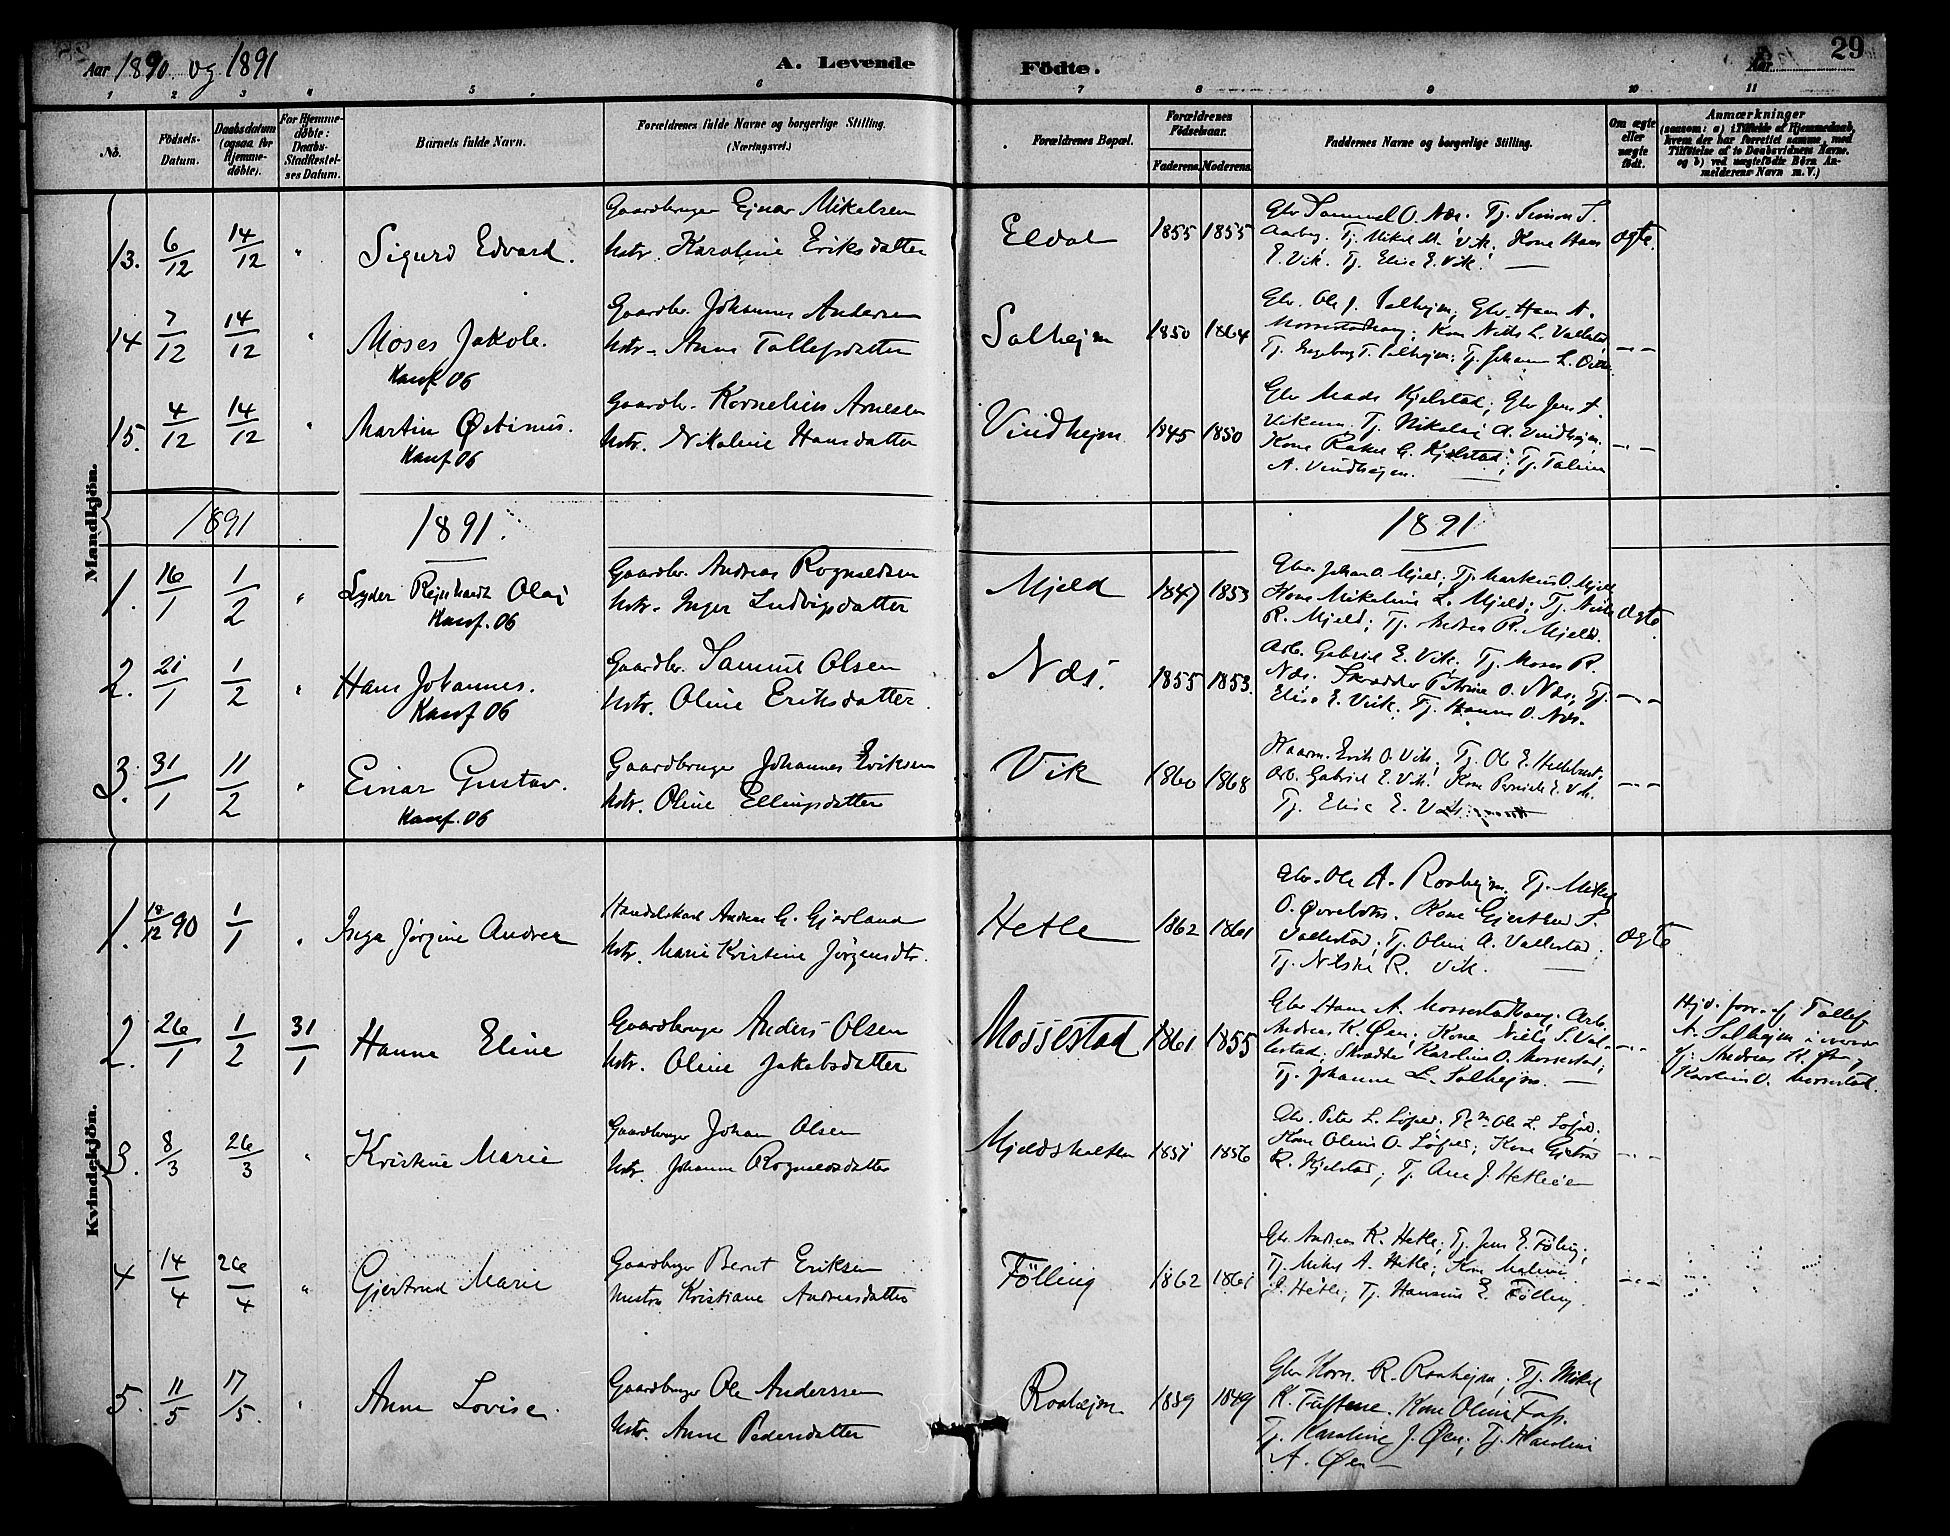 Aar 1890 og 1891
A. Levende Födte.
Aar
29
1 2 3 4 5 6 7 8 9 10 11
No.
Födsels-Datum.
Daabsdatum (ogsaa for Hjemme-döbte).
For Hjemme-döbte: Daabs-Stadfæstel-ses Datum.
Barnets fulde Navn.
Forældrenes fulde Navne og borgerlige Stilling.
(Næringsvei.)
Forældrenes Bopæl.
Forældrenes Födselsaar.
Faderens. Moderens.
Faddernes Navne og borgerlige Stilling.
Om ægte eller uægte födt.
Anmærkninger
(saasom: a) i Tilfælde af Hjemmedaab, hvem der har forrettet samme, med Tilföielse af to Daabsvidners Navne, og b) ved uægtefödte Börn An-melderens Navn m. V.)
Mandkjön.
13. 6/12 14/12 " Sigurd Edvard.
Gaardbruger Ejnar Mikelsen
hstr. Karoline Eriksdatter
Eldal 1855 1855
Gbr Samuel O. Næs. Tj. Simon S.
Aarberg. Tj. Mikel M. Vik. Kone Hans
E. Vik. Tj. Elise E. Vik.
ægte.
14 7/12 14/12 " Moses Jakob.
Konf. 06
Gaardbr. Johannes Andersen
hstr. Anne Tollefsdatter
Solhejm 1850 1864
Gbr. Ole J. Solhejm, Gbr. Hans A.
Mossestadhaug; Kone Nille L. Vallestad,
Tj. Ingeborg T. Solhejm; Tj. Johanne L.
" "
15. 4/12 14/12 " Martin Østinus.
Konf 06
Gaardbr. Kornelius Arnesen
hstr. Nikoline Hansdatter
Vindhejm 1845 1850
Gbr Mads Kjelstad; Gbr Jens A.
Tj. Nikolai A. Vindhejm.
Kone Rakel G. Kjelstad; Tj. Taline
A. Vindhejm.
" "
1891 1891. 1891
1. 16/1 1/2 " Lyder Rejnhardt Olai
Konf. 06
Gaardbr. Andreas Rognaldsen
hstr. Inger Ludvigsdatter
Mjeld 1847 1853
Gbr. Johan O. Mjeld; Tj. Markus O. Mjeld
Kone Mikeline L. Mjeld; Tj.
R. Mjeld; Tj. Andrea R. Mjeld.
ægte.
2. 21/1 1/2 " Hans Johannes.
Konf 06
Gaardbr. Samuel Olsen
hstr. Oline Eriksdatter.
Næs. 1855 1853.
Arb. Gabriel E. Vik. Tj. Moses R.
Næs. Skrædder Petrine O. Næs; Tj.
Elise E. Vik. Tj. Hanna O. Næs.
" "
3. 31/1 11/2 " Einar Gustav.
Konf. 06
Gaardbruger Johannes Eriksen
hstr. Oline Ellingsdatter
Vik 1860 1868
Kaarm. Erik O. Vik; Tj. Ole E.
Arb. Gabriel E. Vik. Kone Pernille E. Vik.
Tj. Elise E. Vik.
" "
Kvindekjön.
1. 18/12 90 1/1 " Inga Jørgine Andrea
Handelskarl Andreas G. Gjerland
hstr. Marie Kristine Jørgensdtr.
Hetle 1862 1861
Gbr. Ole A. Roahejm. Tj. Mikel
O. Kone Gjertrud S.
Vallestad; Tj. Oline A. Vallestad;
Tj. Nilske R. Vik.
ægte
2. 26/1 1/2 31/1 Hanna Eline
Gaardbruger Anders Olsen
hstr. Oline Jakobsdatter
Mossestad 1861 1855
Gbr Hans A. Mossestadhaug. Arb.
Andreas K. Øen; Kone Nille S. Val-
lestad; Skrædder Karoline O. Mossestad;
Tj. Johanne L. Solhejm.
" "
Hjd. forr. af Tollef
A. Solhejm i nærv.
af Andreas K. Øen og
Karoline O. Mossestad.
3. 8/3 26/3 " Kristine Marie
Gaardbruger Johan Olsen
hstr. Johanne Rognaldsdatter
Mjeldsholten 1851 1856
Gbr Peter L. Løfald; Ole L. Løfald;
Kone Oline O. Løfald; Kone Gjertrud
R. Kjelstad; Tj. Ane J. Hetleøen
" "
4 14/4 26/4 " Gjertrud Marie
Gaardbruger Bernt Eriksen
hustru Kristiane Andreasdatter
Fölling 1862 1861
Gbr Andreas K. Hetle; Tj. Jens E. Følling;
Tj. Mikel A. Hetle; Kone Malene
J. Hetle; Tj. Hansine E. Fölling.
" "
5. 11/5 17/5. " Anna Lovise.
Gaardbruger Ole Anderssen
hstr. Anne Pedersdatter
Roahejm 1859 1849
Gbr Korn. R. Roahejm; Tj. Mikel
K. Tuftene. Kone Oline
Tj. Karoline J. Øen; Tj. Karoline
A. Øen